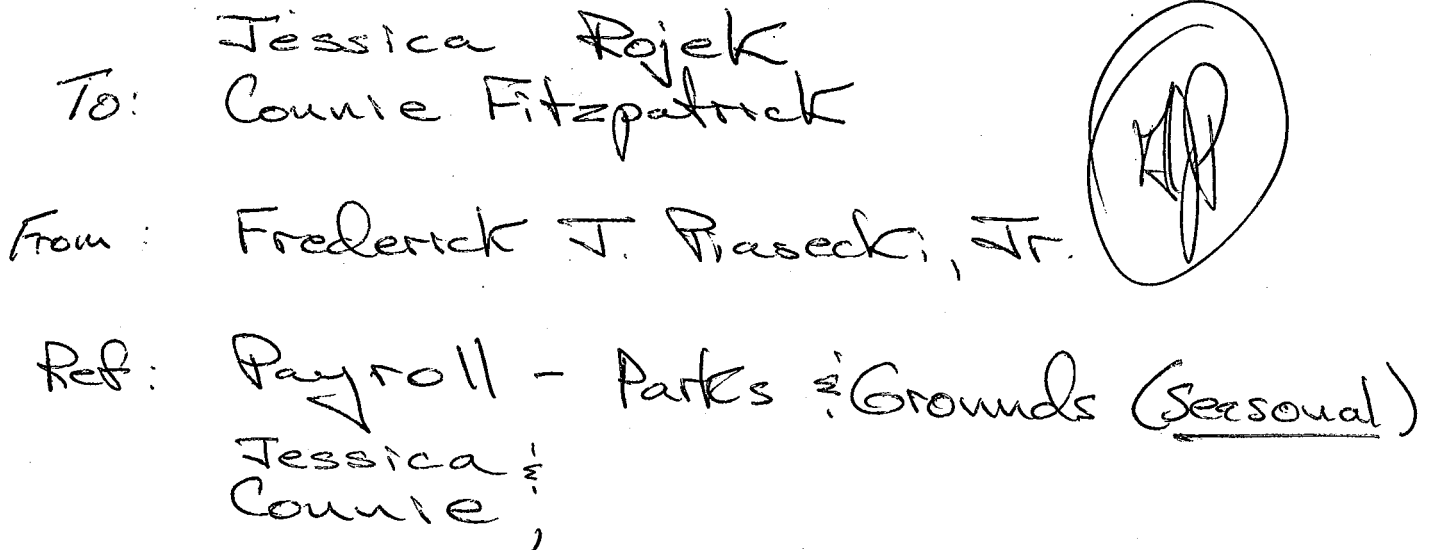 Jessica Rojek
To: Connie Fitzpatrick
From: Frederick J. Piasecki, Jr.
Ref: Payroll - Parks & Grounds (Seasonal)
Jessica &
Connie,